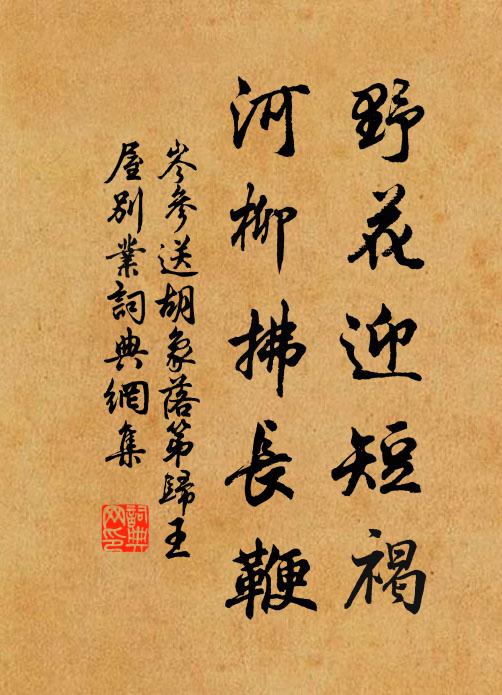 野花迎短褐
河柳拂長鞭
岑參送胡象落第歸王
屋別業詞典網集
詞典网印